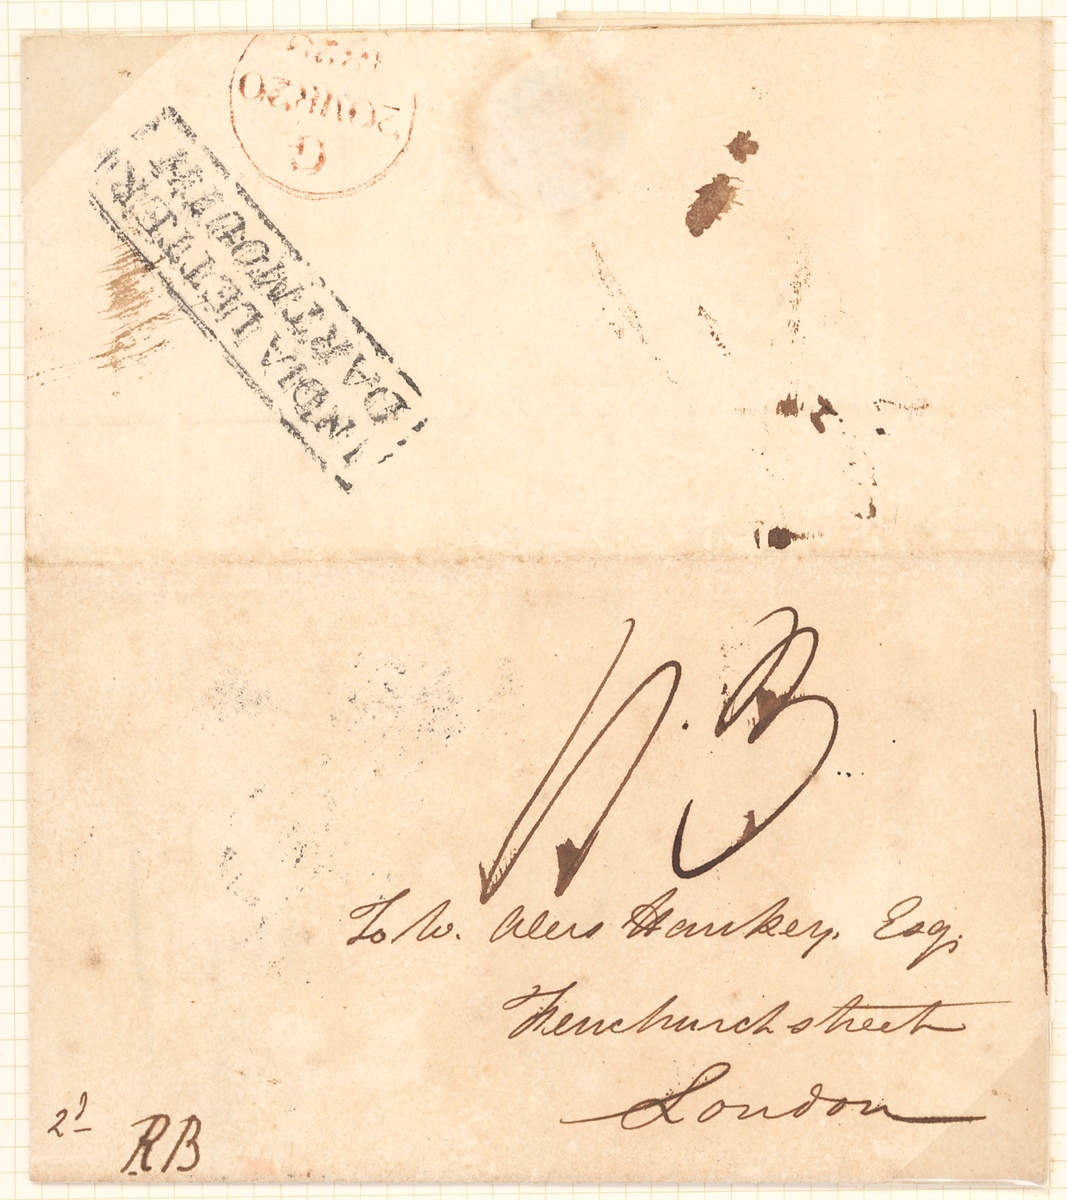 INDIA LETTER
DARTMOUTH
G
20 MR 20
To W. Alers Hankey. Esq.
Fenchurch street
London
2d
RB